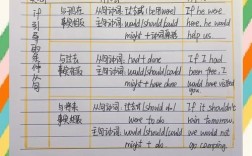 if
与现在
事实相反
从句动词:过去式(be用were)
主句动词:would/should/could/
might+动词原形
If he were
here, he would
help us.
与过去
事实相反
从句动词:had+done
主句动词:would/should/could/
might+have done
If I had
been free, I
would have
visited you.
与将来
事实相反
从句动词:过去式/should do/
were to do
主句动词:
would/should/could/
might+do
If it should
rain tomorrow,
we would not
go camping.